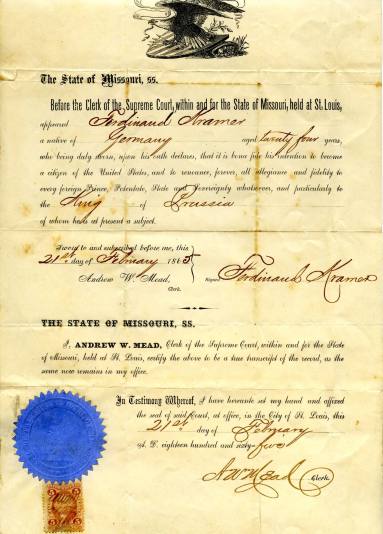 The State of Missouri, ss.
Before the Clerk of the Supreme Court, within and for the State of Missouri, held at St. Louis,
appeared Ferdinand Kramer
a native of Germany aged twenty four years,
who being duly sworn, upon his oath declares, that it is bona fide his intention to become
a citizen of the United States, and to renounce, forever, all allegiance and fidelity to
every foreign Prince, Potentate, State and Sovereignty whatsoever, and particularly to
the King of Prussia
of whom he is at present a subject.
Sworn to and subscribed before me, this
21st day of February 1865
Andrew W. Mead,
Clerk.
Signed Ferdinand Kramer
THE STATE OF MISSOURI, SS.
I, ANDREW W. MEAD, Clerk of the Supreme Court, within and for the State
of Missouri, held at St. Louis, certify the above to be a true transcript of the record, as
the same now remains in my office.
In Testimony Whereof, I have hereunto set my hand and affixed
the seal of said Court, at office, in the City of St. Louis, this
21st day of February
A. D. eighteen hundred and sixty-five
A W Mead Clerk.